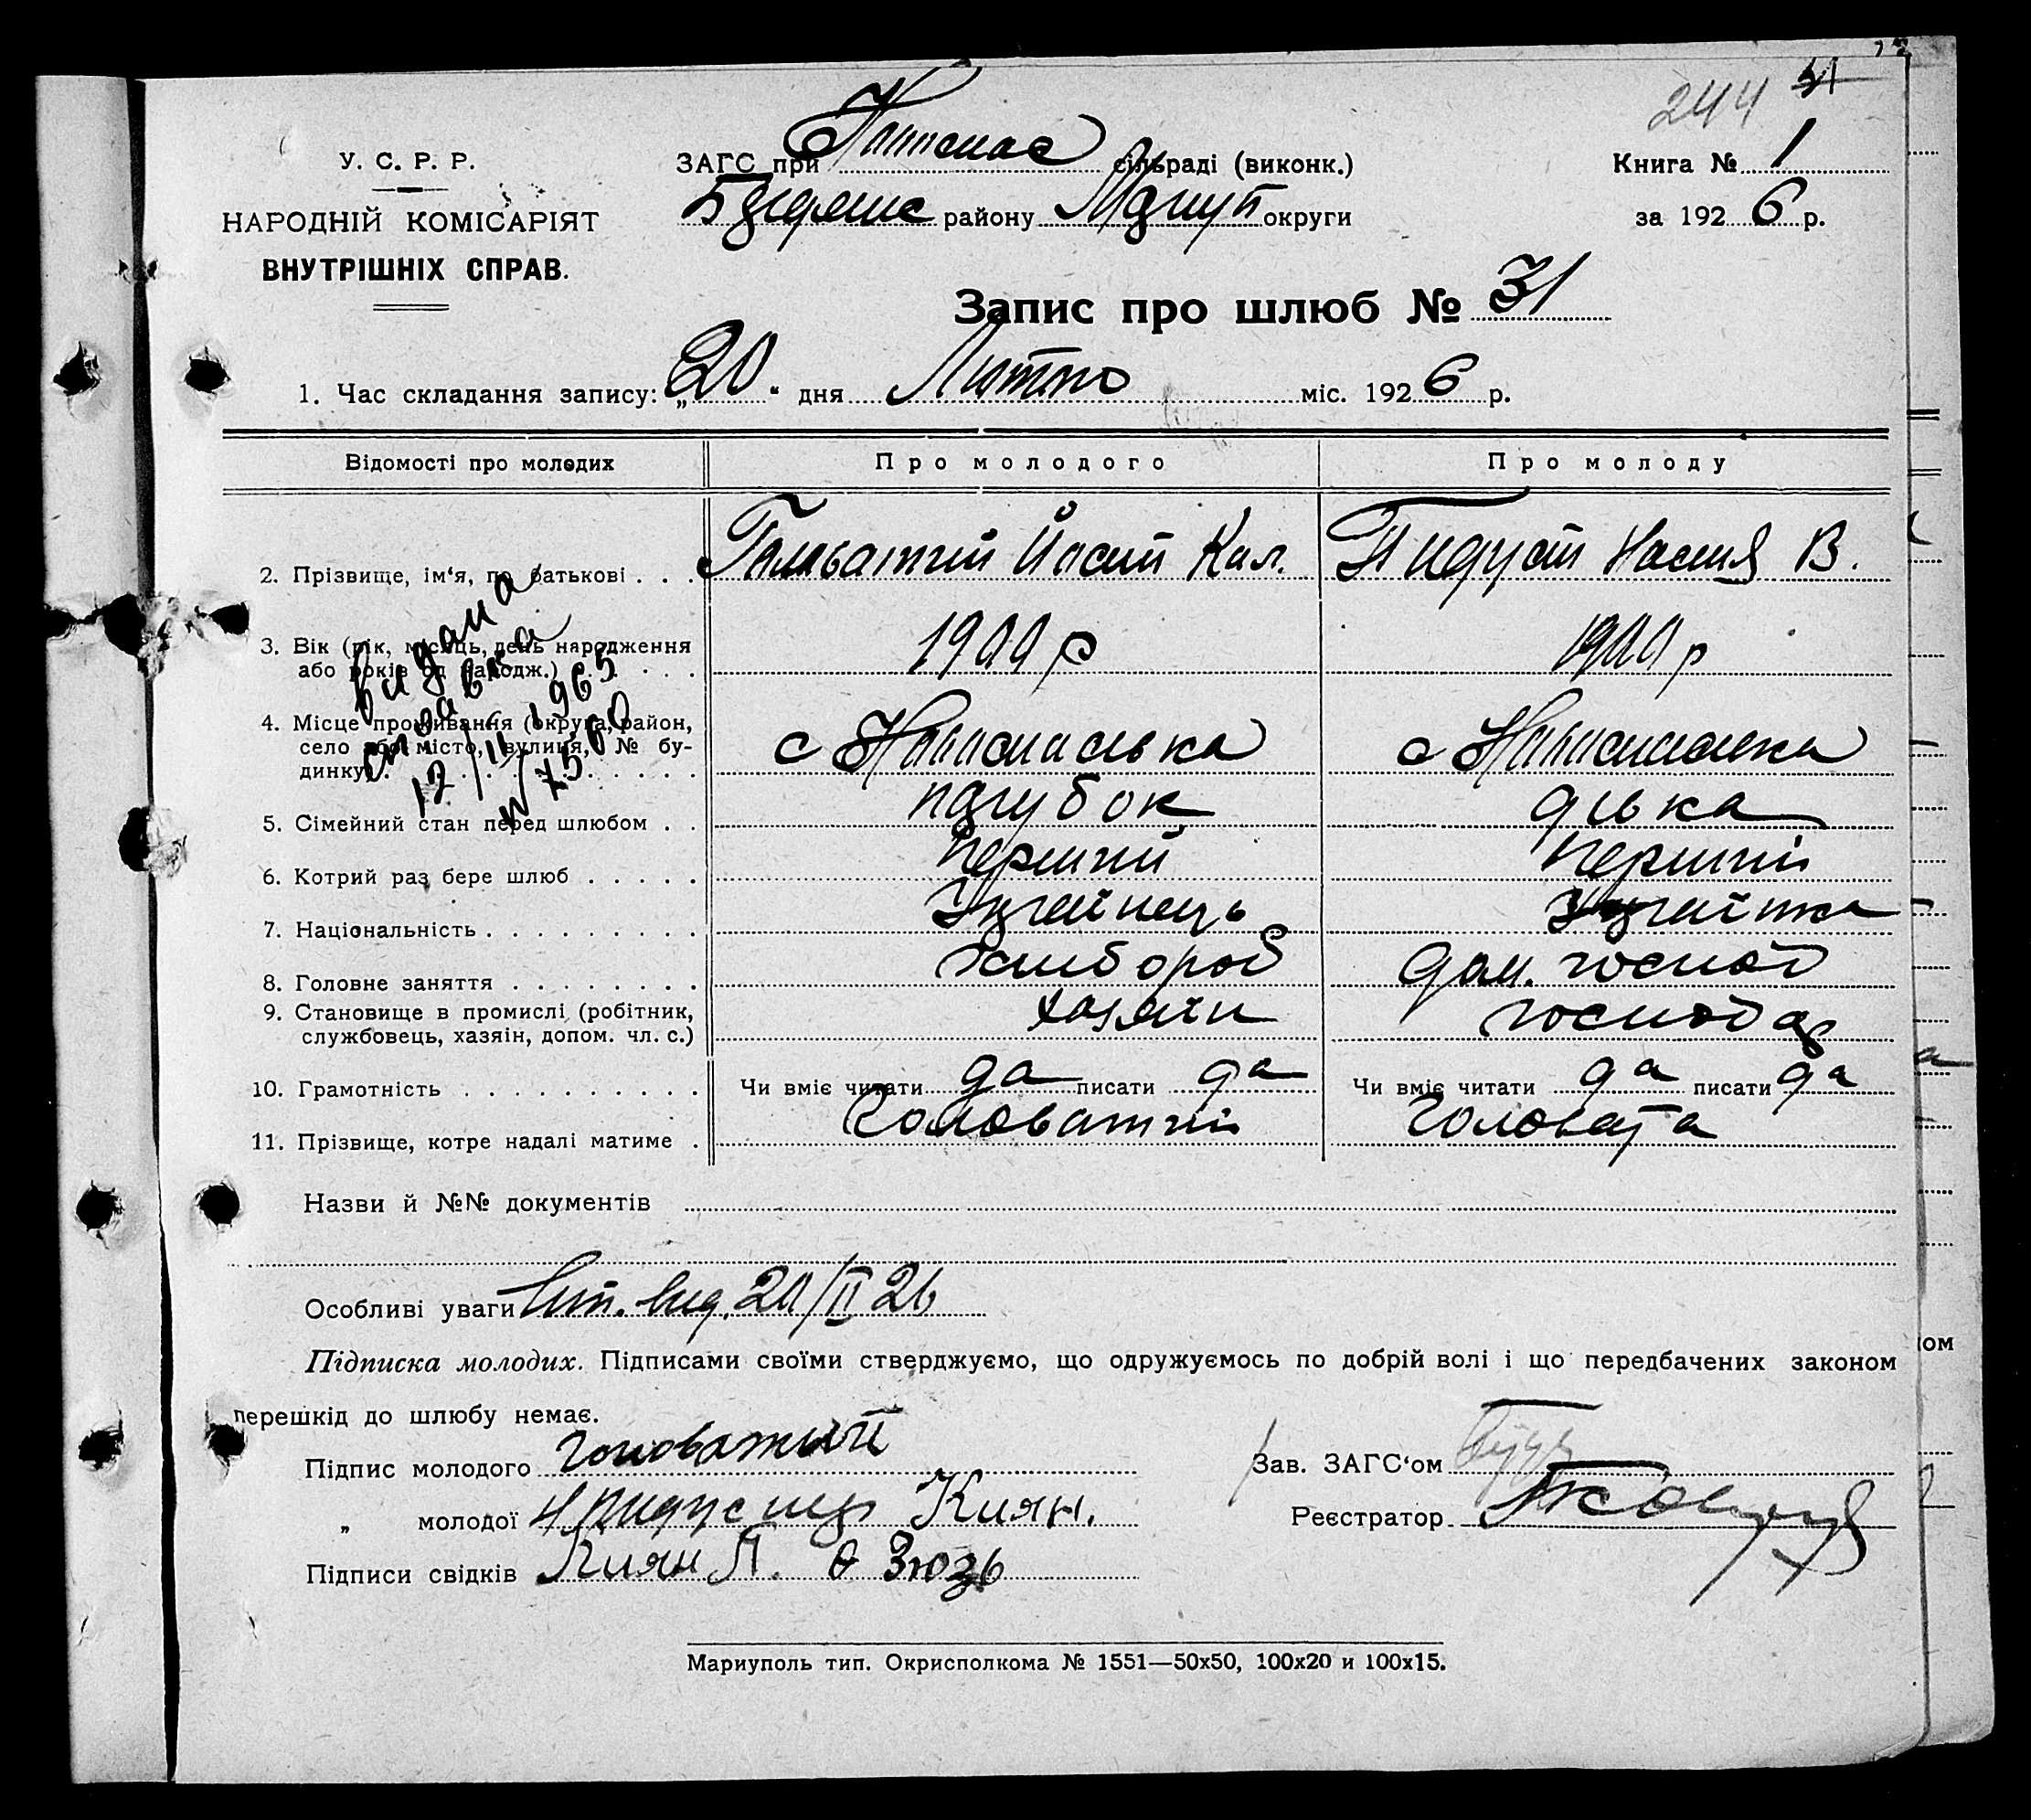 244 31
У. С. Р. Р.
НАРОДНІЙ КОМІСАРІЯТ
ВНУТРІШНІХ СПРАВ.
ЗАГС при сільраді (виконк.)
району округи
Книга № 1
за 1926 р.
Запис про шлюб № 31
1. Час складання запису: „20" дня Лютого міс. 1926 р.
Відомості про молодих Про молодого Про молоду
2. Прізвище, ім'я, по батькові . . . Головатий Йосип Кал. Настя В.
3. Вік (рік, місяць, день народження
або років од народж.) . . . . 1900 р 1900 р
4. Місце проживання (округа, район,
село або місто, вулиця, № бу-
динку) . . . . . . . с с
видана
справка
12/II 1965
N 7560
5. Сімейний стан перед шлюбом . . парубок дівка
6. Котрий раз бере шлюб . . . . . перший перший
7. Національність . . . . . . . . . Українець Українка
8. Головне заняття . . . . . . . . хлібороб дом. господ
9. Становище в промислі (робітник,
службовець, хазяїн, допом. чл. с.) хазяїн господар
10. Грамотність . . . . . . . . . . Чи вміє читати да писати да Чи вміє читати да писати да
11. Прізвище, котре надалі матиме . Головатий Головата
Назви й №№ документів
Особливі уваги Вит. вид. 20/II 26
Підписка молодих. Підписами своїми стверджуємо, що одружуємось по добрій волі і що передбачених законом
перешкід до шлюбу немає.
Підпис молодого Головатий
„ молодої Киян.
Підписи свідків Киян П. Зюзь
Зав. ЗАГС'ом
Реєстратор
Мариуполь тип. Окрисполкома № 1551—50х50, 100х20 и 100х15.